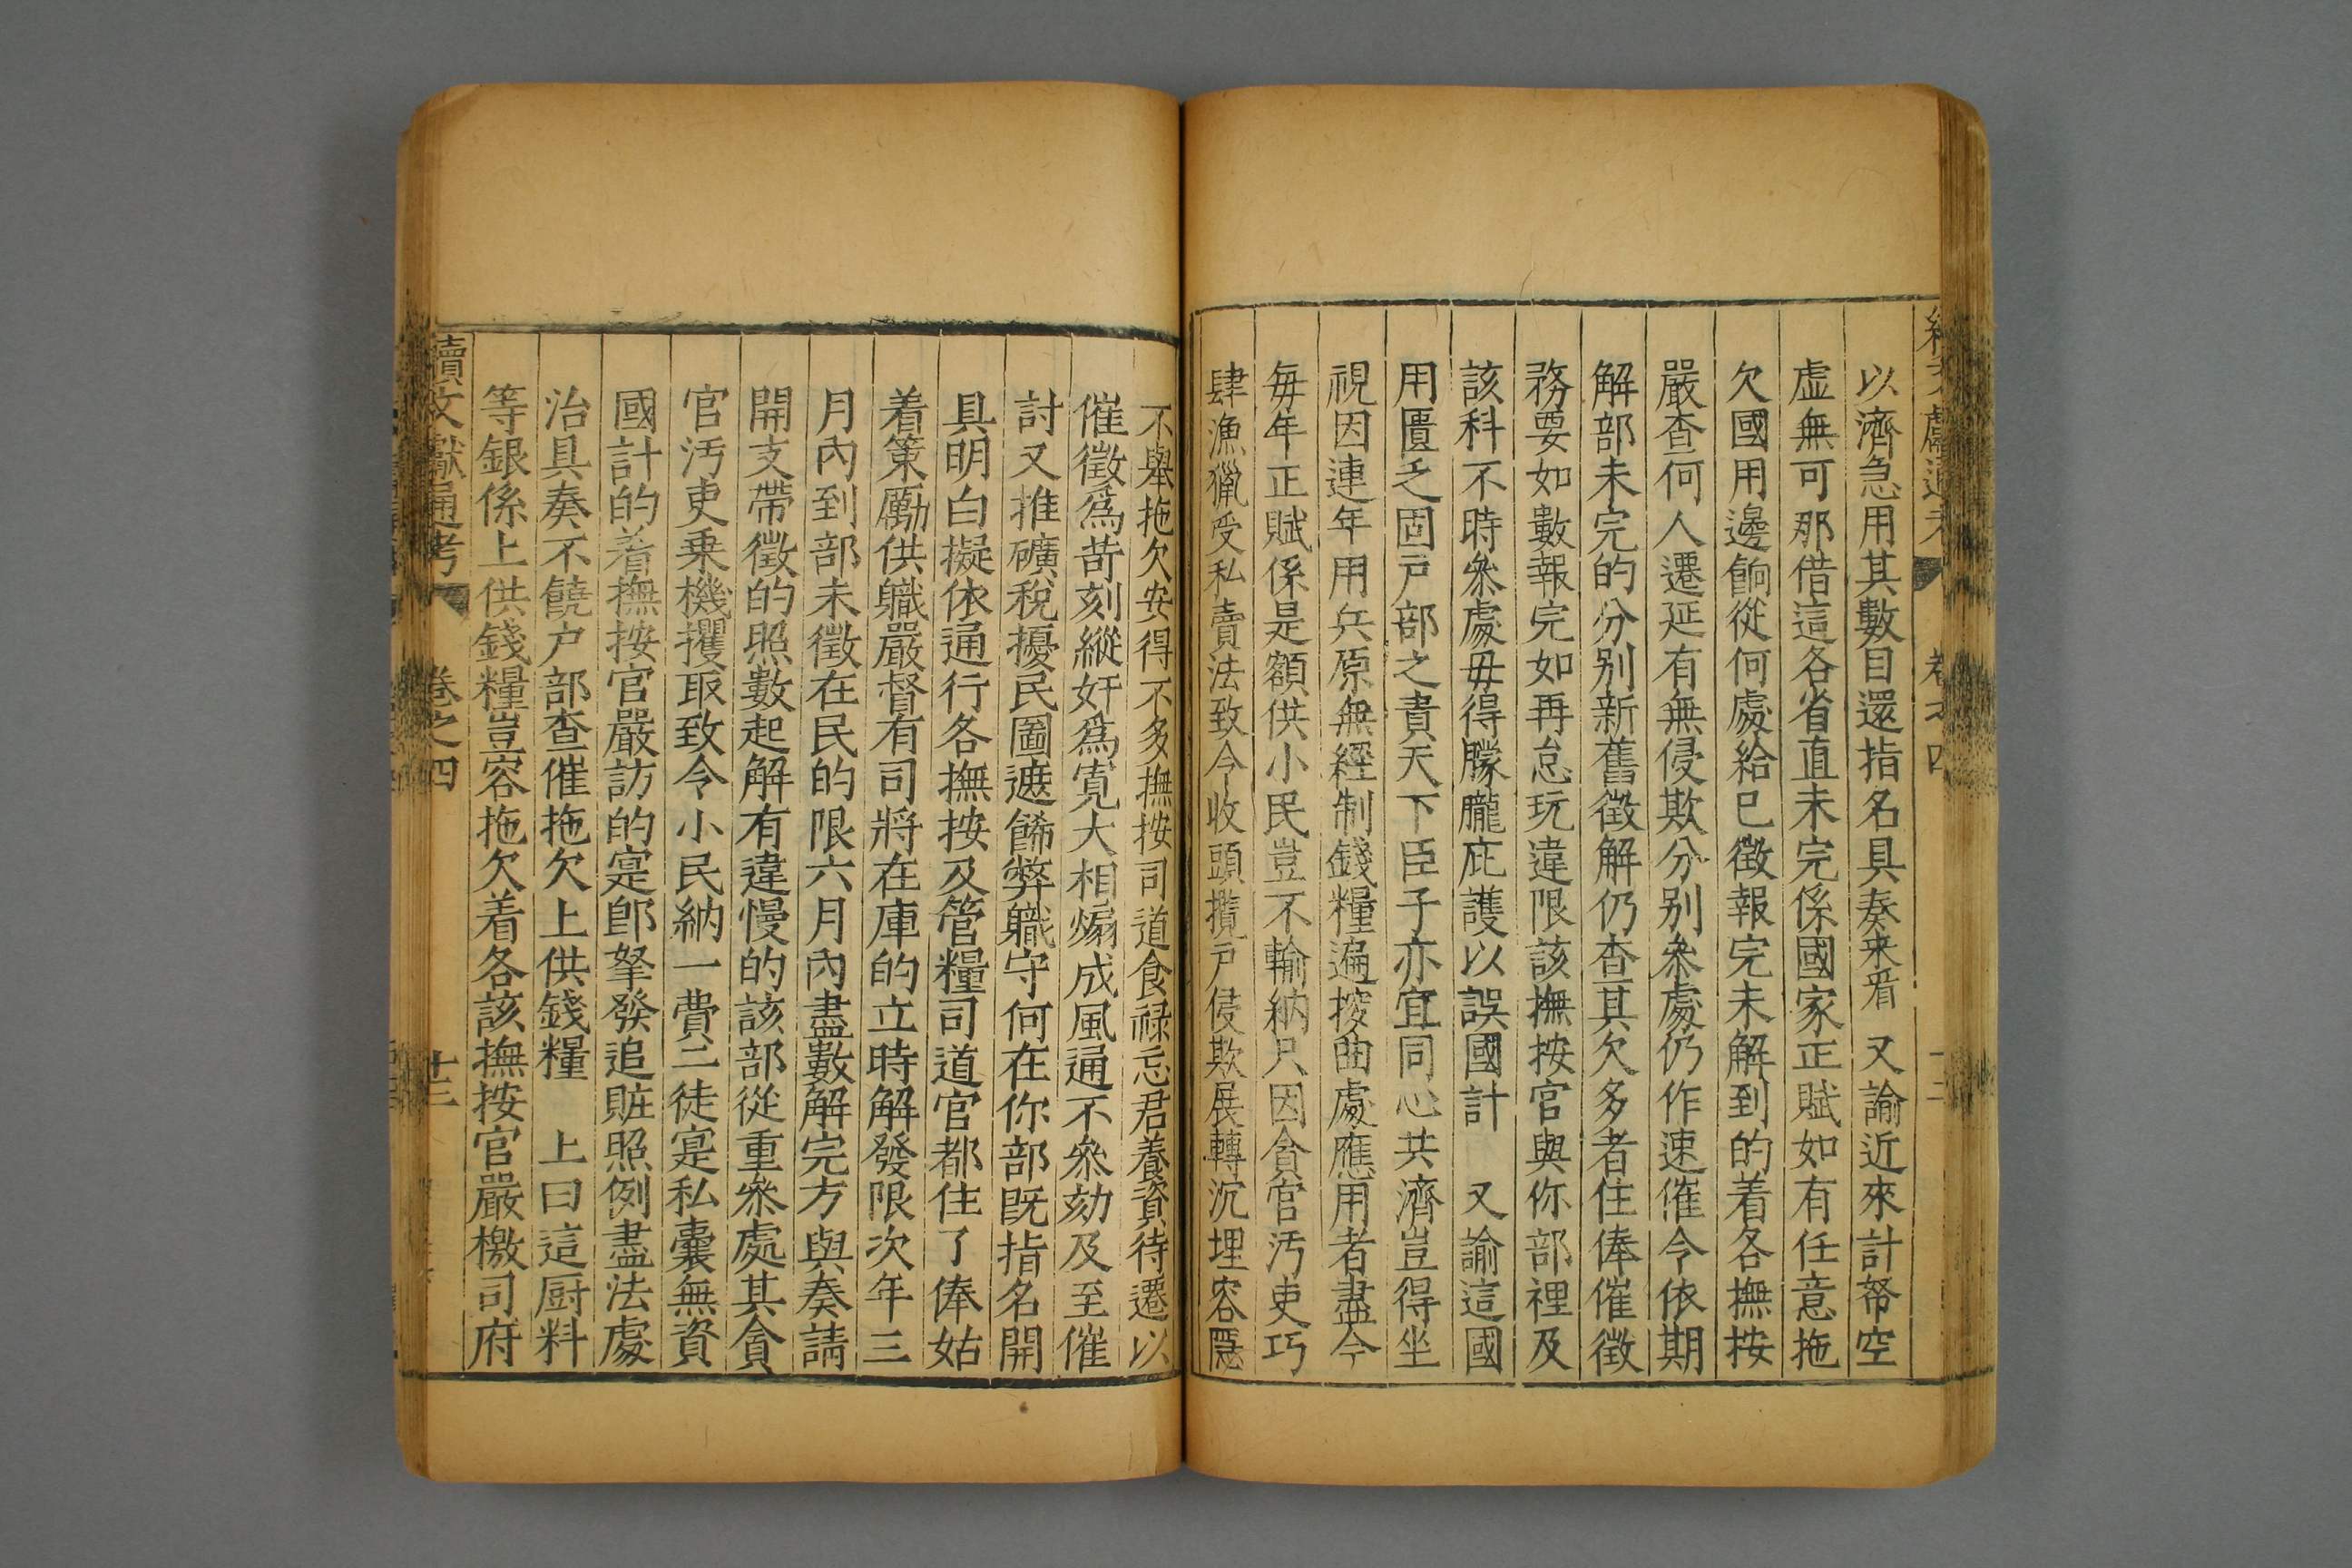 以濟急用其數目還指名具奏来看　又諭近來計帑空
虚無可那借這各省直未完係國家正賦如有任意拖
欠國用邊餉從何處給已徵報完未解到的着各撫按
嚴查何人遷延有無侵欺分别叅處仍作速催令依期
解部未完的分别新舊徵解仍查其欠多者住俸催徵
務要如數報完如再怠玩違限該撫按官與你部裡及
該科不時叅處毋得朦朧庇護以誤國計　又諭這國
用匱乏固戸部之責天下臣子亦宜同心共濟豈得坐
視因連年用兵原無經制錢糧遍搜曲處應用者盡今
毎年正賦係是額供小民豈不輸納只因貪官汚吏巧
肆漁獵受私賣法致今收頭攬戸侵欺展轉沉埋容隱
不舉拖欠安得不多撫按司道食禄忘君養資待遷以
催徵爲苛刻縱奸爲寛大相煽成風通不叅劾及至催
討又推礦稅擾民圖遮飾弊職守何在你部既指名開
具明白擬依通行各撫按及管糧司道官都住了俸姑
着策勵供職嚴督有司將在庫的立時解發限次年三
月內到部未徵在民的限六月內盡數解完方與奏請
開支帶徵的照數起解有違慢的該部從重叅處其貪
官汚吏乗機攫取致令小民納一費二徒寔私囊無資
國計的着撫按官嚴訪的寔卽拏發追賍照例盡法處
治具奏不饒户部查催拖欠上供錢糧　上曰這厨料
等銀係上供錢糧豈容拖欠着各該撫按官嚴檄司府
續文獻通考　卷之四　十三